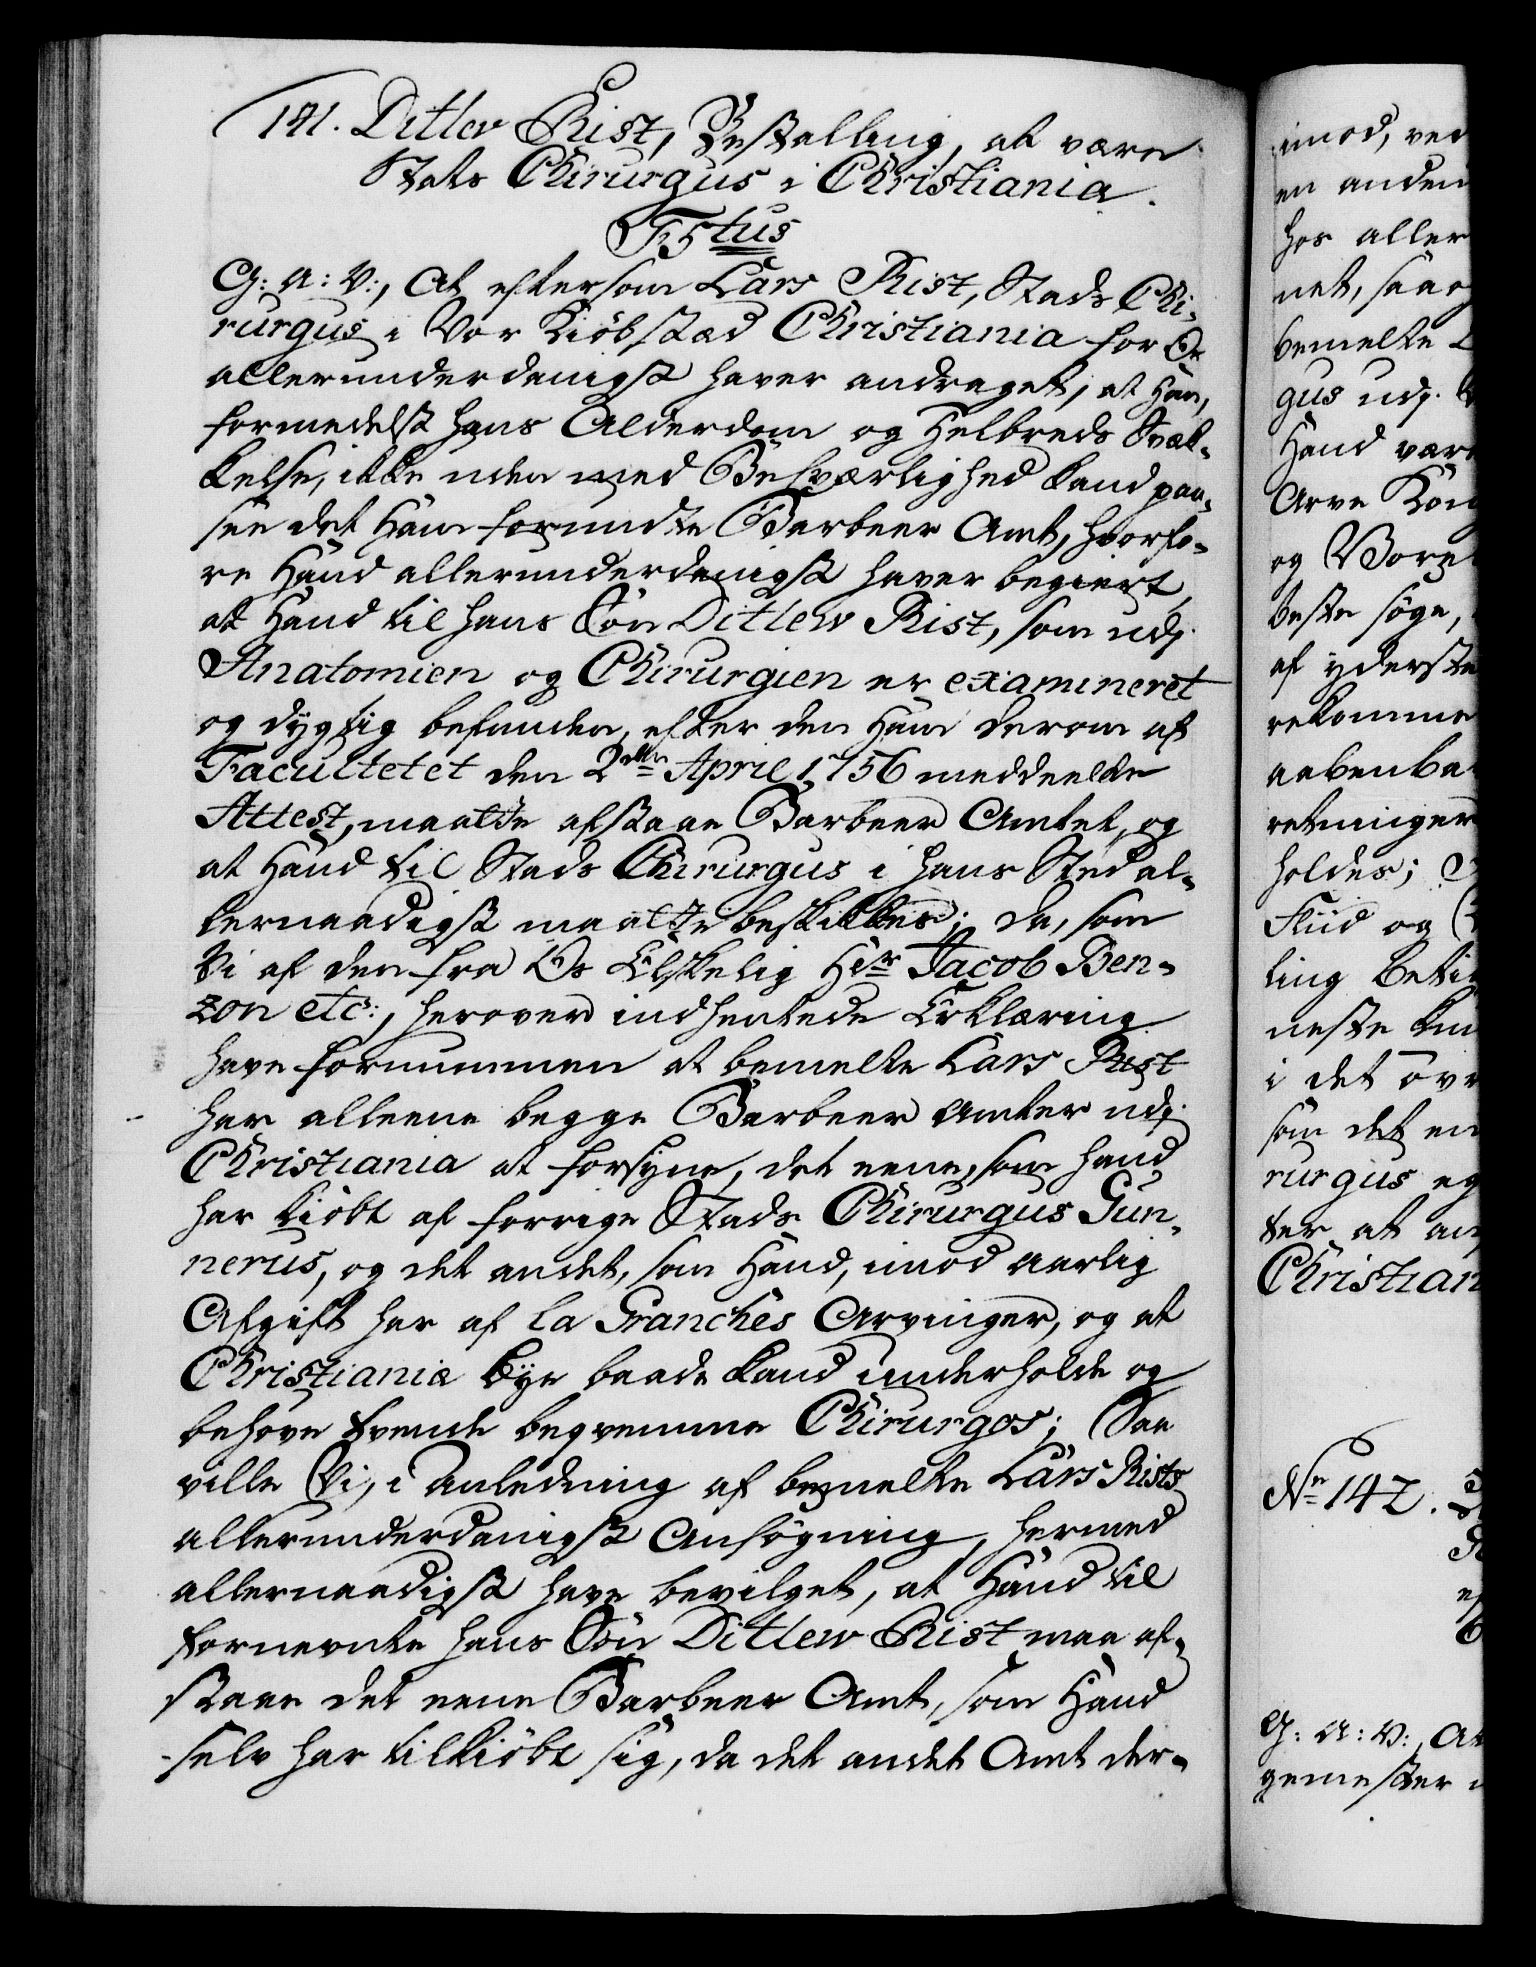 141. Ditlev Rist, Bestalling, at være
Stads Chirurgus i Christiania.
F5tus
G: A: V:, At eftersom Lars Rist, Stads Chi-
rurgus i Vor Kiøbstæd Christiania for Os
allerunderdanigst haver andraget, at Han,
formedelst hans Alderdom og Helbreds Svæk-
kelse, ikke uden med Besværlighed kand paa-
see det Ham forundte Barbeer Amt, hvorfo-
re Hand allerunderdanigst haver begiert,
at Hand til hans Søn Ditlev Rist, som udj
Anatomien og Chirurgien er examineret
og dygtig befunden, efter den Ham derom af
Facultetet den 2den April 1756 meddeelte
Attest, maatte afstaae Barbeer Amtet, og
at Hand til Stads Chirurgus i hans Sted al-
lernaadigst maatte beskikkes; da, som
Vi af den fra Os Elskelig Hr Jacob Ben-
zon etc:, herover indhentede Erklæring
have fornummen at bemelte Lars Rist
har alleene begge Barbeer Amter udj
Christiania at forsyne, det eene, som hand
har kiøbt af forrige Stads Chirurgus Gun-
nerus, og det andet, som Hand, imod aarlig
Afgift har af la Granches Arvinger, og at
Christiania Bye baade kand underholde og
behøve tvende beqvemme Chirurgos; Saa
ville Vi, i Anledning af bemelte Lars Rists
allerunderdanigst Ansøgning, hermed
allernaadigst have bevilget, at Hand til
fornevnte hans Søn Ditlev Rist maa af-
staae det eene Barbeer Amt, som Hand
selv har tilkiøbt sig, da det andet Amt der-
imod, ved
en anden
hos aller
net, saa
bemelte
gus udj.
Hand være
Arve Kon
og Vores
beste søge,
af yderste
rekomme
aabenba
retninger
holdes;
Fliid og
ling beti
neste
i det øvr
som det en
rurgus eg
ter at an
Christian
No 142.
G: A: V:, At
gemester